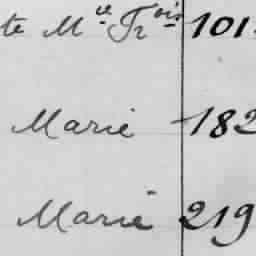 te Mᵉ Frᵒⁱˢ 101
Marie 182
Marie 219